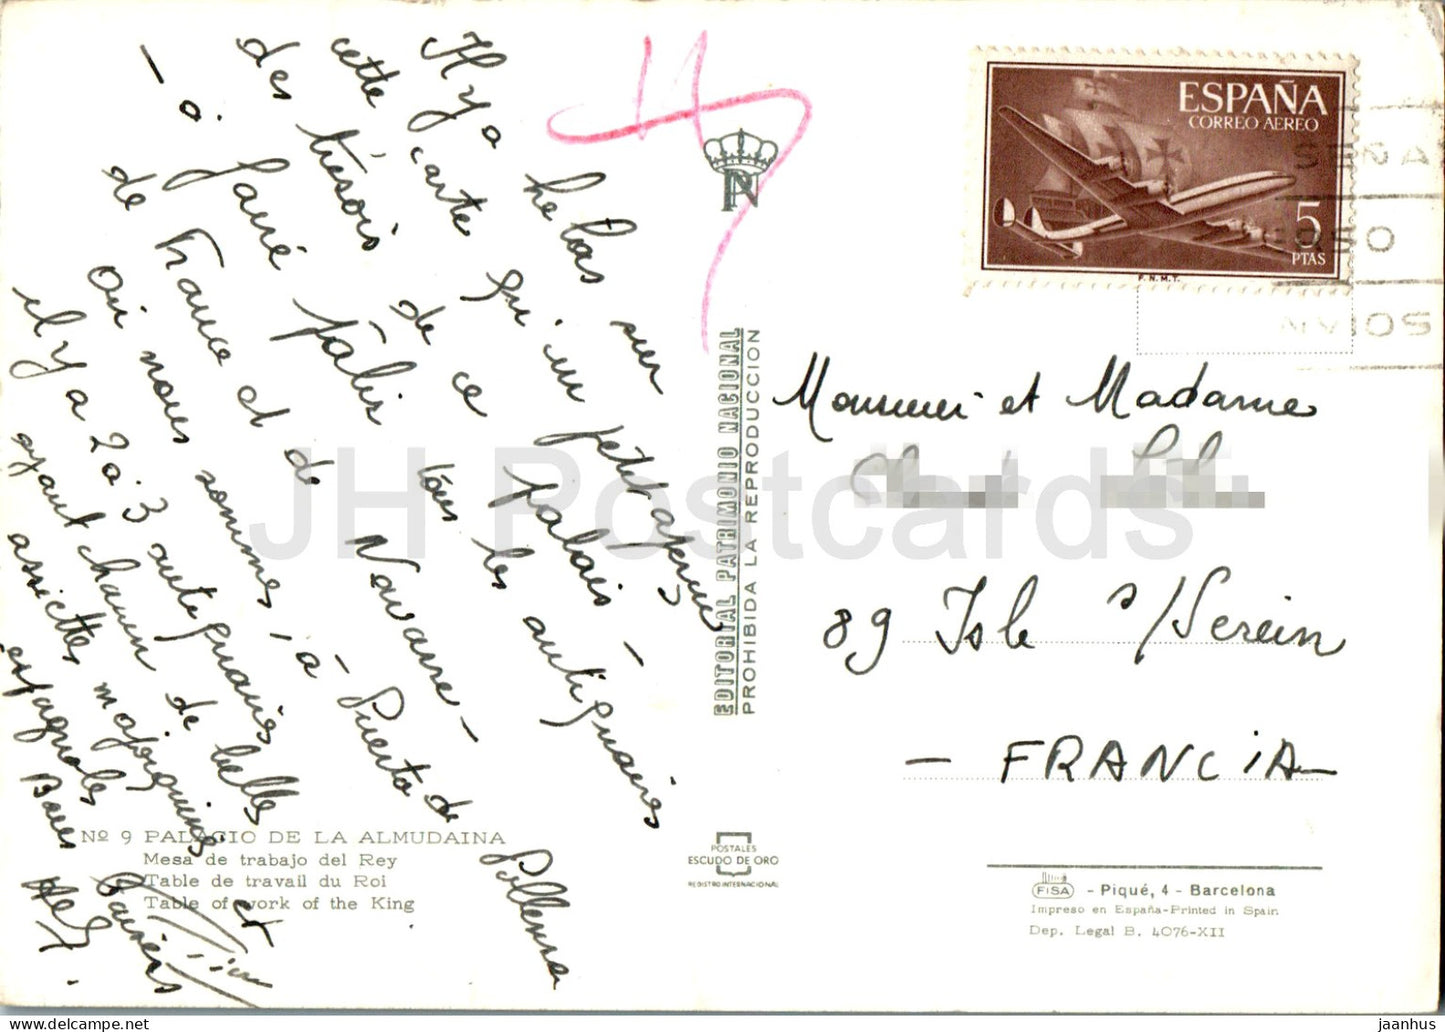 Il y a hélas sur
cette carte qu'un petit aperçu
des trésors de ce Palais –
– à faire pâlir tous les antiquaires
de France et de Navarre –
Où nous sommes, à Puerto de Pollensa
il y a 2 à 3 antiquaires
ayant chacun de belles
assiettes majorquines et
espagnoles
Bons Baisers
Nº 9 PALACIO DE LA ALMUDAINA
Mesa de trabajo del Rey
Table de travail du Roi
Table of work of the King
EDITORIAL PATRIMONIO NACIONAL
PROHIBIDA LA REPRODUCCION
PN
POSTALES
ESCUDO DE ORO
REGISTRO INTERNACIONAL
ESPAÑA
CORREO AEREO
5
PTAS
F.N.M.T.
Monsieur et Madame
89 Isle s/Serein
– FRANCIA –
FISA - Piqué, 4 - Barcelona
Impreso en España-Printed in Spain
Dep. Legal B. 4076-XII
JH Postcards
HipPostcard.com/jaanhus